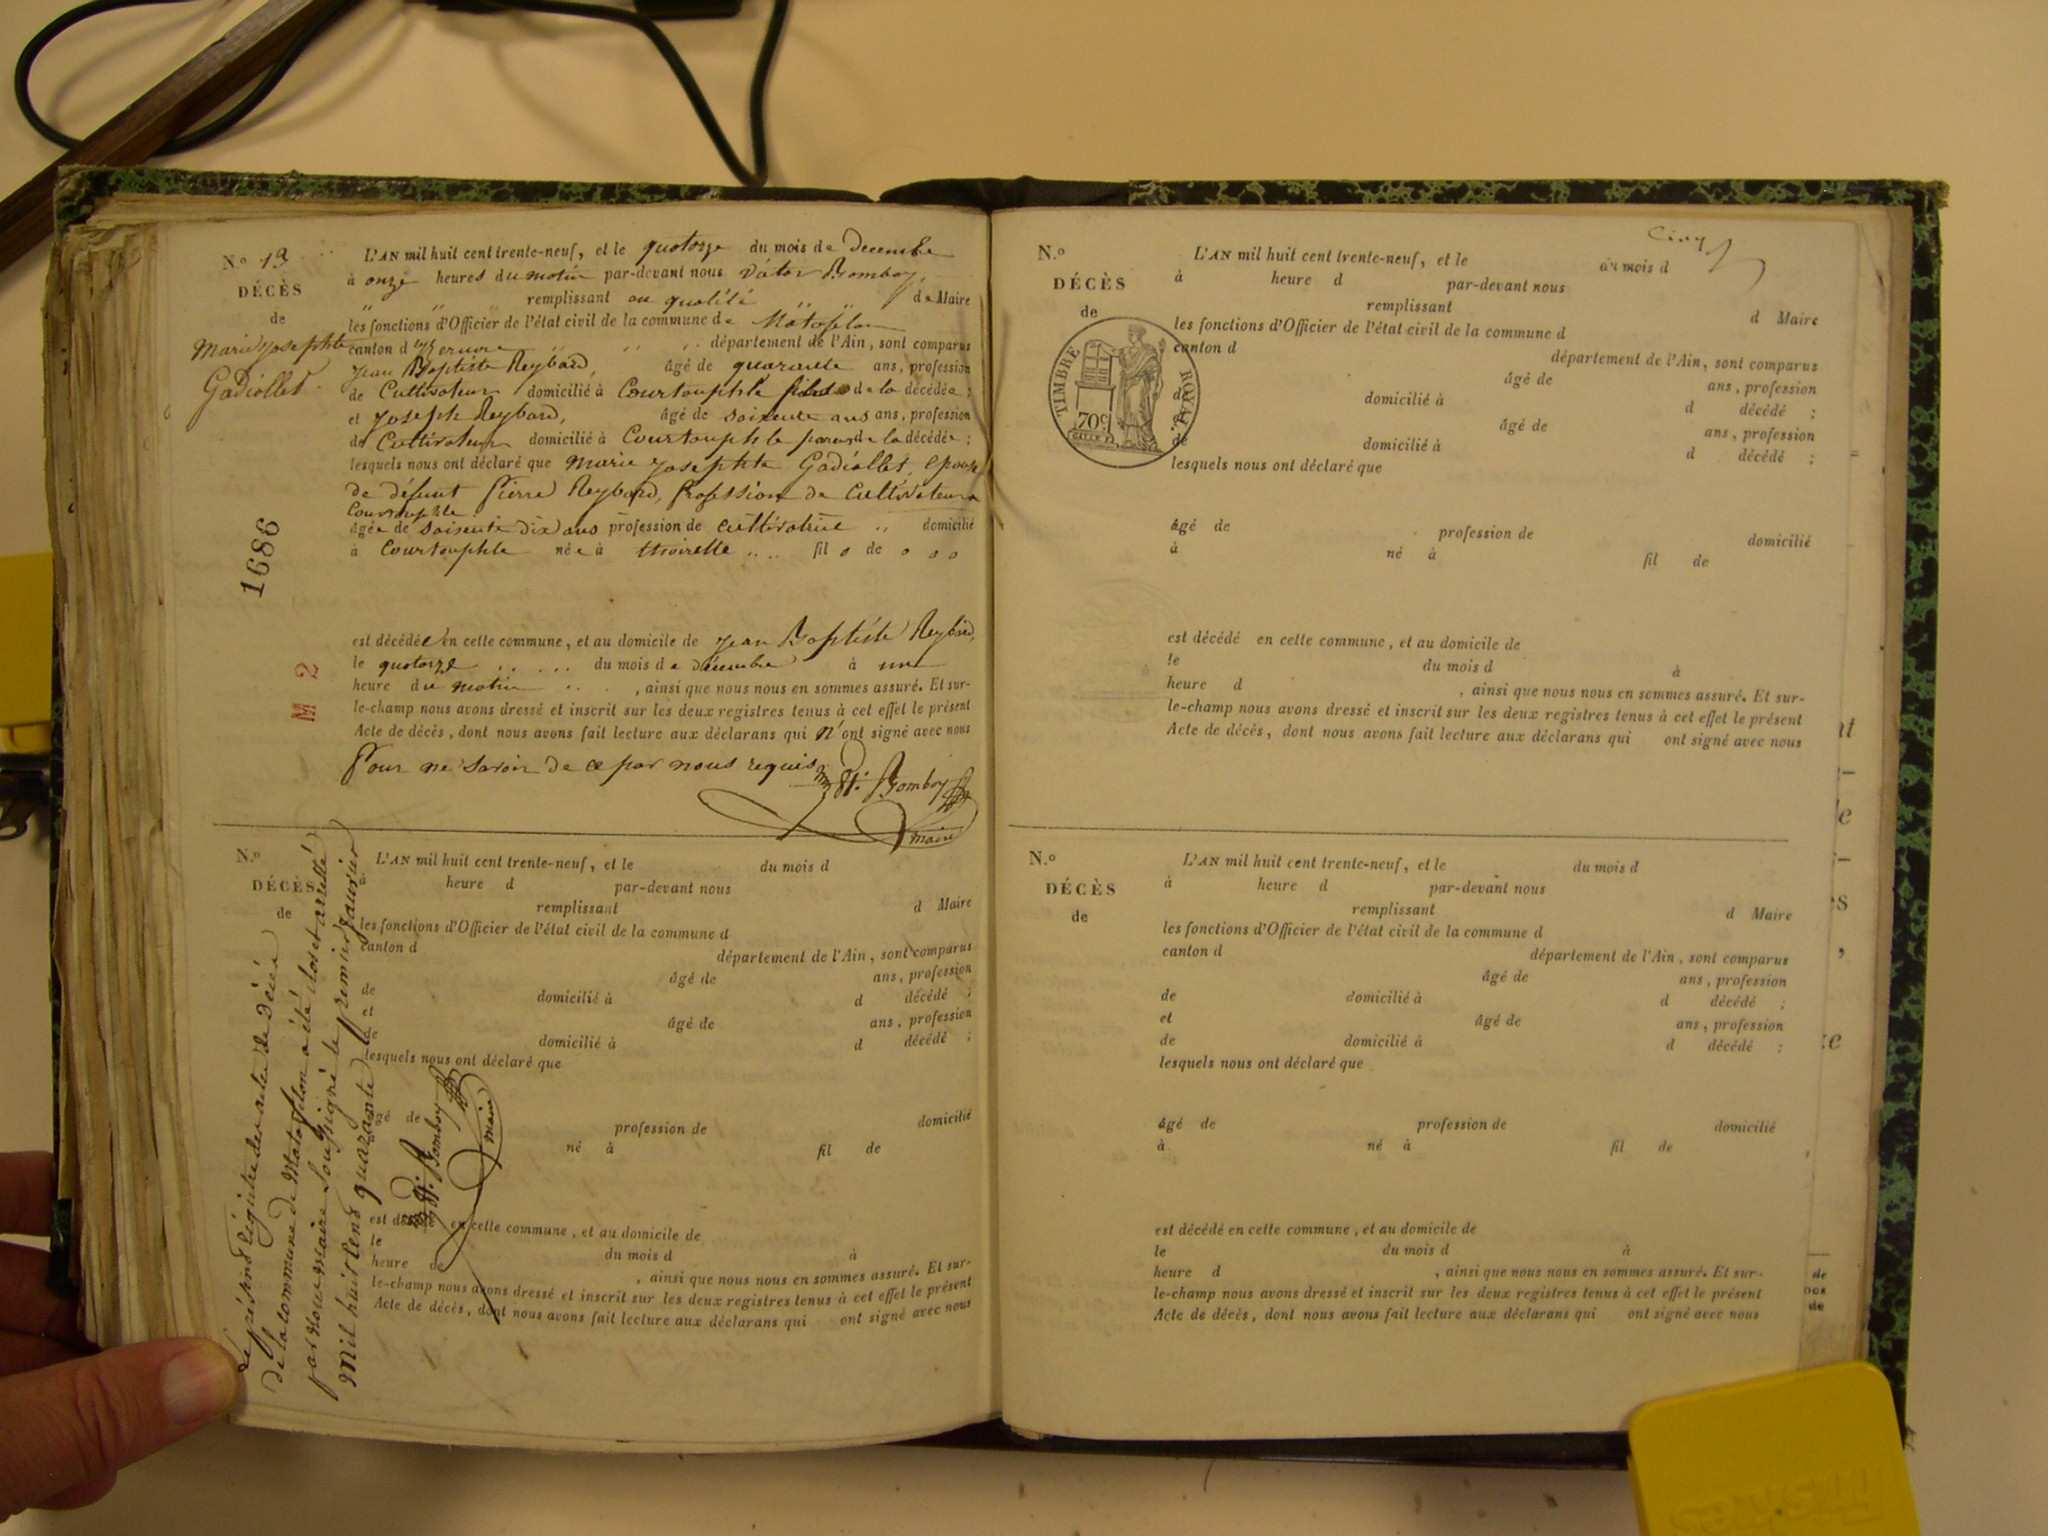 N.º 13
DÉCÈS
de
Marie Josephte
Gadiollet
L'AN mil huit cent trente-neuf, et le quatorze du mois de Decembre
à onze heures du matin par-devant nous Bomboy,
remplissant en qualité de Maire
les fonctions d'Officier de l'état civil de la commune de Matafelon
canton d'Izernore département de l'Ain, sont comparus
Jean Baptiste Reybard, âgé de quarante ans, profession
de Cultivateur domicilié à Courtouphle de la décédée ;
et Joseph Reybard, âgé de soixante ans ans, profession
de Cultivateur domicilié à Courtouphle de la décédée ;
lesquels nous ont déclaré que Marie Josephte Gadiollet, epouse
de défunt Pierre Reybard, profession de Cultivateur a
Courtouphle
âgée de soixante dix ans profession de cultivatrice domicilié
à Courtouphle née à thoirette fil de
est décédée en cette commune, et au domicile de Jean Baptiste Reybard,
le quatorze du mois de décembre à une
heure du matin , ainsi que nous nous en sommes assuré. Et sur-
le-champ nous avons dressé et inscrit sur les deux registres tenus à cet effet le présent
Acte de décès, dont nous avons fait lecture aux déclarans qui n'ont signé avec nous
Pour ne savoir de ce par nous requis
Bomboy
maire
1686
M 2
N.º
DÉCÈS
de
L'AN mil huit cent trente-neuf, et le du mois d
à heure d par-devant nous
remplissant d Maire
les fonctions d'Officier de l'état civil de la commune d
canton d département de l'Ain, sont comparus
âgé de ans, profession
de domicilié à d décédé ;
et âgé de ans, profession
de domicilié à d décédé ;
lesquels nous ont déclaré que
âgé de profession de domicilié
né à fil de
est décédé en cette commune, et au domicile de
le du mois d à
heure de , ainsi que nous nous en sommes assuré. Et sur-
le-champ nous avons dressé et inscrit sur les deux registres tenus à cet effet le présent
Acte de décès, dont nous avons fait lecture aux déclarans qui ont signé avec nous
Le présent régistre des actes de Décès
de la commune de Matafelon a été clos et arrêté
par Nous maire Soussigné le premier janvier
Mil huit cent quarante
Bomboy
maire
Cinq
N.º
DÉCÈS
de
TIMBRE ROYAL
70c
L'AN mil huit cent trente-neuf, et le du mois d
à heure d par-devant nous
remplissant d Maire
les fonctions d'Officier de l'état civil de la commune d
canton d département de l'Ain, sont comparus
âgé de ans, profession
de domicilié à d décédé ;
âgé de ans, profession
de domicilié à d décédé ;
lesquels nous ont déclaré que
âgé de profession de domicilié
à né à fil de
est décédé en cette commune, et au domicile de
le du mois d à
heure d , ainsi que nous nous en sommes assuré. Et sur-
le-champ nous avons dressé et inscrit sur les deux registres tenus à cet effet le présent
Acte de décès, dont nous avons fait lecture aux déclarans qui ont signé avec nous
N.º
DÉCÈS
de
L'AN mil huit cent trente-neuf, et le du mois d
à heure d par-devant nous
remplissant d Maire
les fonctions d'Officier de l'état civil de la commune d
canton d département de l'Ain, sont comparus
âgé de ans, profession
de domicilié à d décédé ;
et âgé de ans, profession
de domicilié à d décédé ;
lesquels nous ont déclaré que
âgé de profession de domicilié
à né à fil de
est décédé en cette commune, et au domicile de
le du mois d à
heure d , ainsi que nous nous en sommes assuré. Et sur-
le-champ nous avons dressé et inscrit sur les deux registres tenus à cet effet le présent
Acte de décès, dont nous avons fait lecture aux déclarans qui ont signé avec nous